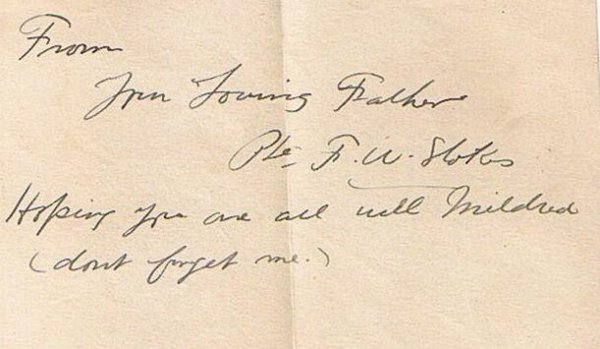 From
Your Loving Father
Pte, F. W. Stokes
Hoping you are all well Mildred
(dont forget me.)